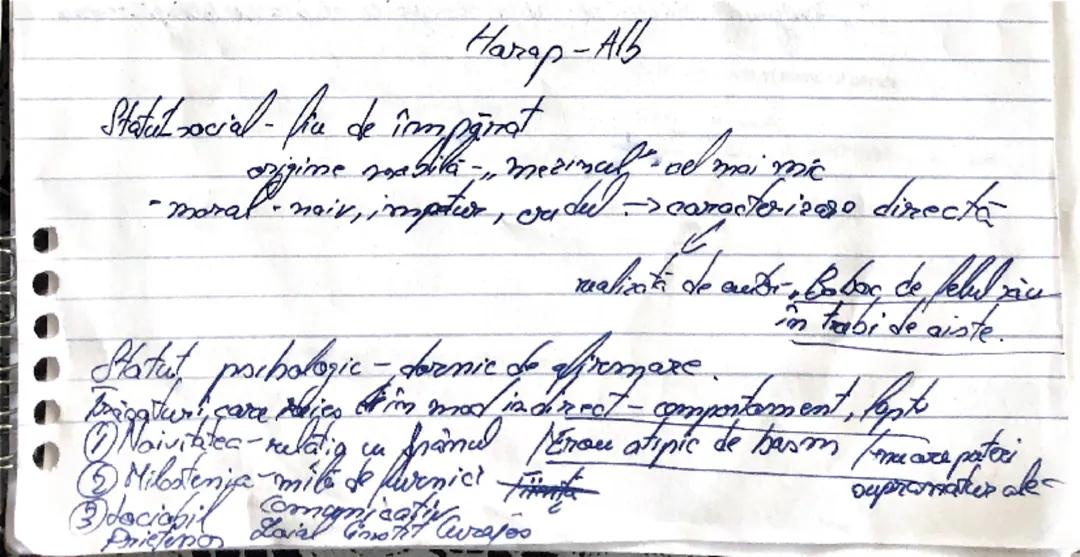 Harap-Alb
Statut social - fiu de împărat
origine nobilă - „mezinul" - cel mai mic
- moral - naiv, imatur, credul -> caracterizare directă
realizată de autor - „Boboc de felul său
în trebi de aiste.
Statut psihologic - dornic de afirmare.
Trăsături care reies din în mod indirect - comportament, fapte
① Naivitatea - relația cu spânul / Erou atipic de basm / nu are puteri
② Milostenia - milă de furnici supranaturale
③ Sociabil Comunicativ
Prietenos Loial Cinstit Curajos